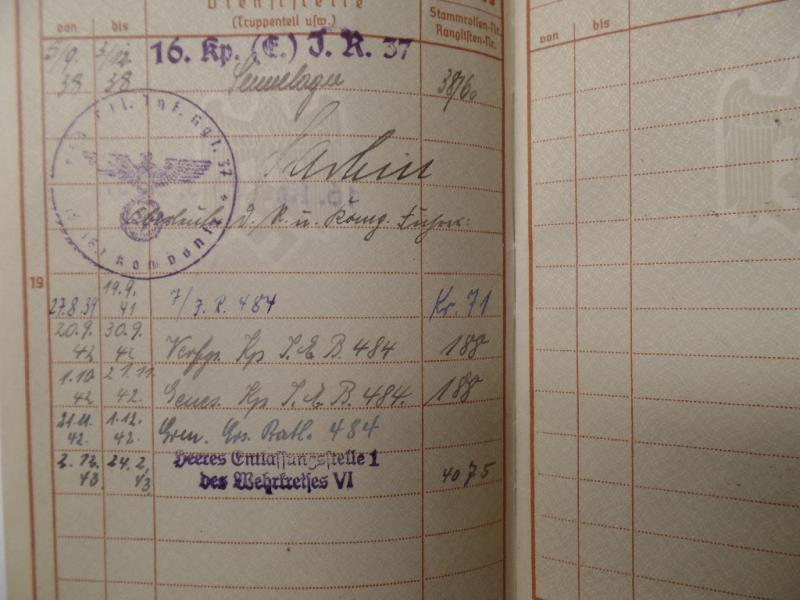 Dienststelle
von bis (Truppenteil usw.) Stammrollen-Nr. Ranglisten-Nr. von bis
5/9. 3/12. 16. Kp. (E.) J. R. 37
38 38 Sennelager 38/60
Inf. Rgt. 37
Oberleutn. d. R. u. Komp. Führer
19
27.8.39 19.9.41 7/J. R. 484 Kr. 71
20.9. 30.9. 
42 42 Kp J. E. B. 484 188
1.10 21.11.
42 42. Genes. Kp J. E. B. 484. 188
21.11. 1.12.
42. 42. Gren. Ers. Batl. 484
2.12. 24.2. Heeres Entlassungsstelle 1
43 43 des Wehrkreises VI 4075